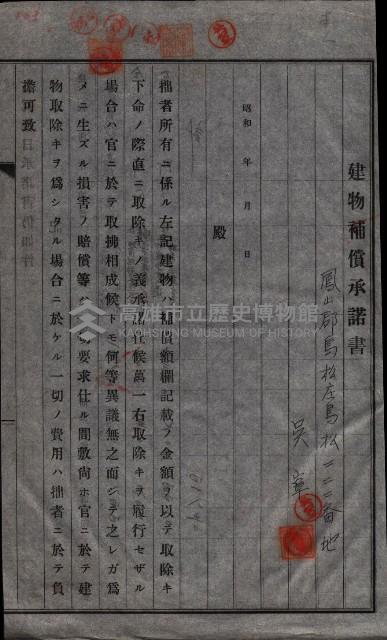 建物補償承諾書
鳳山郡鳥松庄鳥松二二二番地
吳 
昭和 年 月 日
殿
拙者所有ニ係ル左記建物ハ補償額欄記載ノ金額ヲ以テ取除キ
下命ノ際直ニ取除キノ義承諾仕候萬一右取除キヲ履行セザル
場合ハ官ニ於テ取拂相成候トモ何等異議無之而シテ之レガ爲
メニ生ズル損害ノ賠償等ハ一切要求仕ル間敷尙ホ官ニ於テ建
物取除キヲ爲シタル場合ニ於ケル一切ノ費用ハ拙者ニ於テ負
擔可致
高雄市立歷史博物館
KAOHSIUNG MUSEUM OF HISTORY